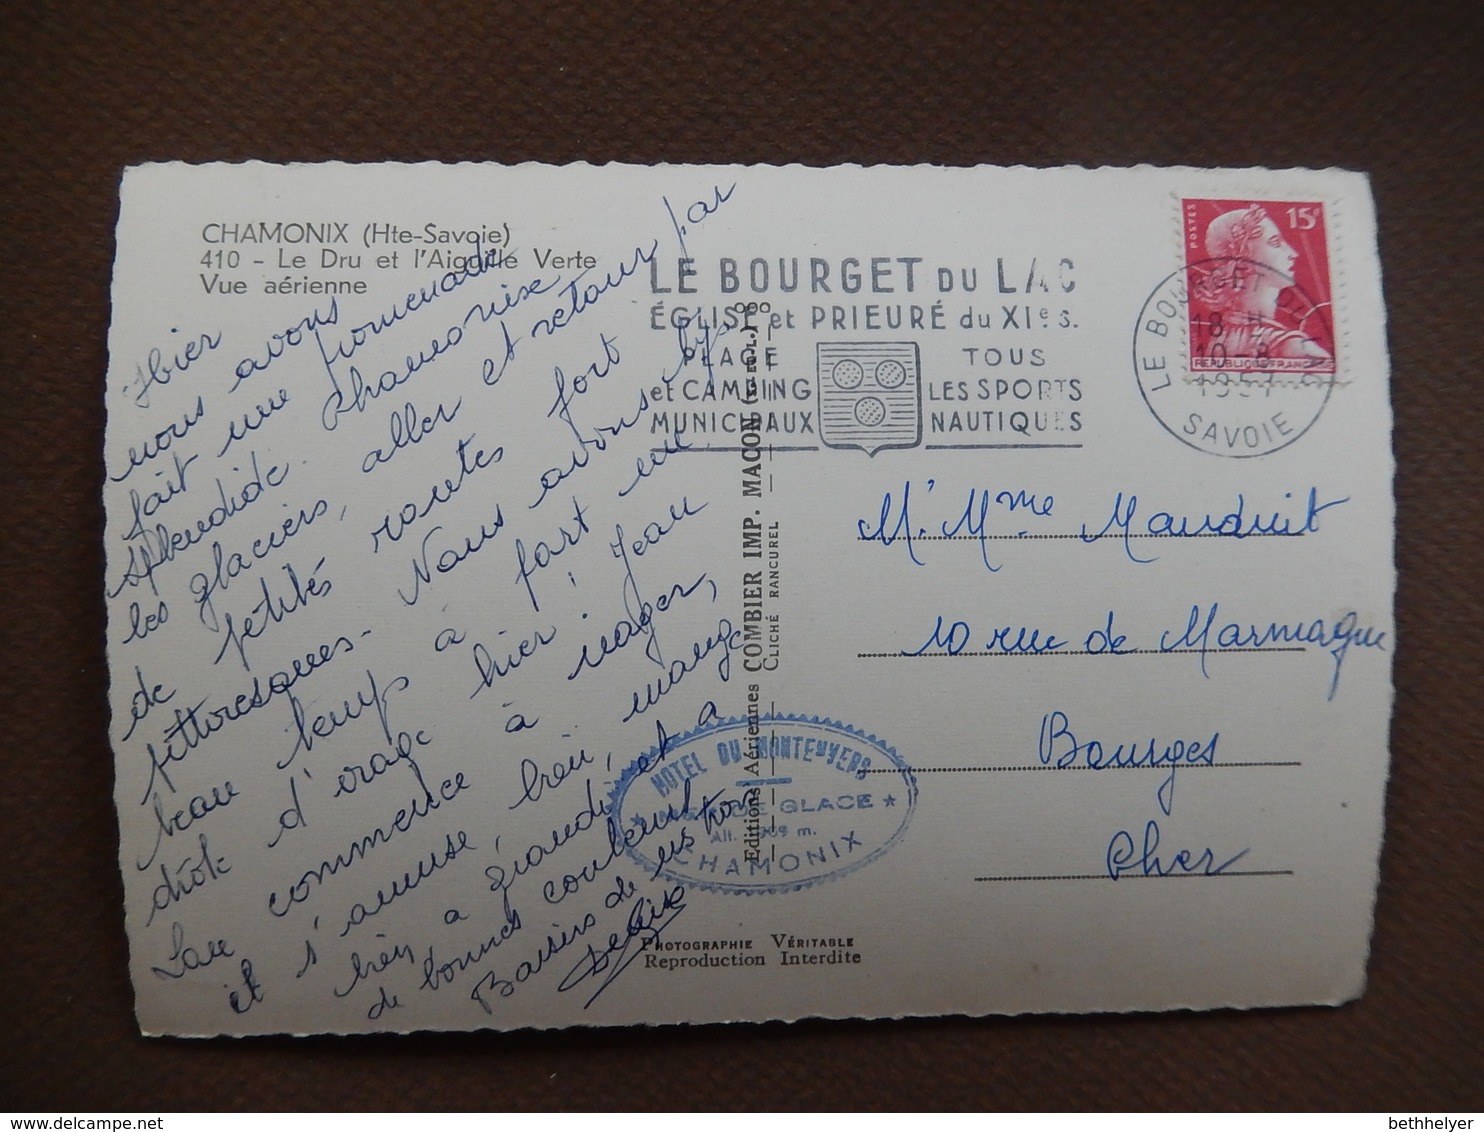 CHAMONIX (Hte-Savoie)
410 - Le Dru et l'Aiguille Verte
Vue aérienne
Hier
nous avons
fait une promenade
splendide. Chamonix
les glaciers, aller et retour par
de petites routes fort
pittoresques. Nous avons eu
beau temps à part un
drôle d'orage hier! Jean
Lou commence à nager,
et s'amuse bien, mange
bien a grandi et a
de bonnes couleurs
Baisers de nous trois
LE BOURGET DU LAC
ÉGLISE et PRIEURÉ du XIe s.
PLAGE
et CAMPING
MUNICIPAUX
TOUS
LES SPORTS
NAUTIQUES
POSTES
15F
REPUBLIQUE FRANÇAISE
LE BOURGET DU LAC
18 H
10-8
1957
SAVOIE
M. Mme Mauduit
10 rue de Marmagne
Bourges
Cher
Editions Aériennes COMBIER IMP. MACON (S.-et-L.)
CLICHÉ RANCUREL
HOTEL DU MONTENVERS
★ MER DE GLACE ★
Alt. 1909 m.
CHAMONIX
PHOTOGRAPHIE VÉRITABLE
Reproduction Interdite
bethhelyer